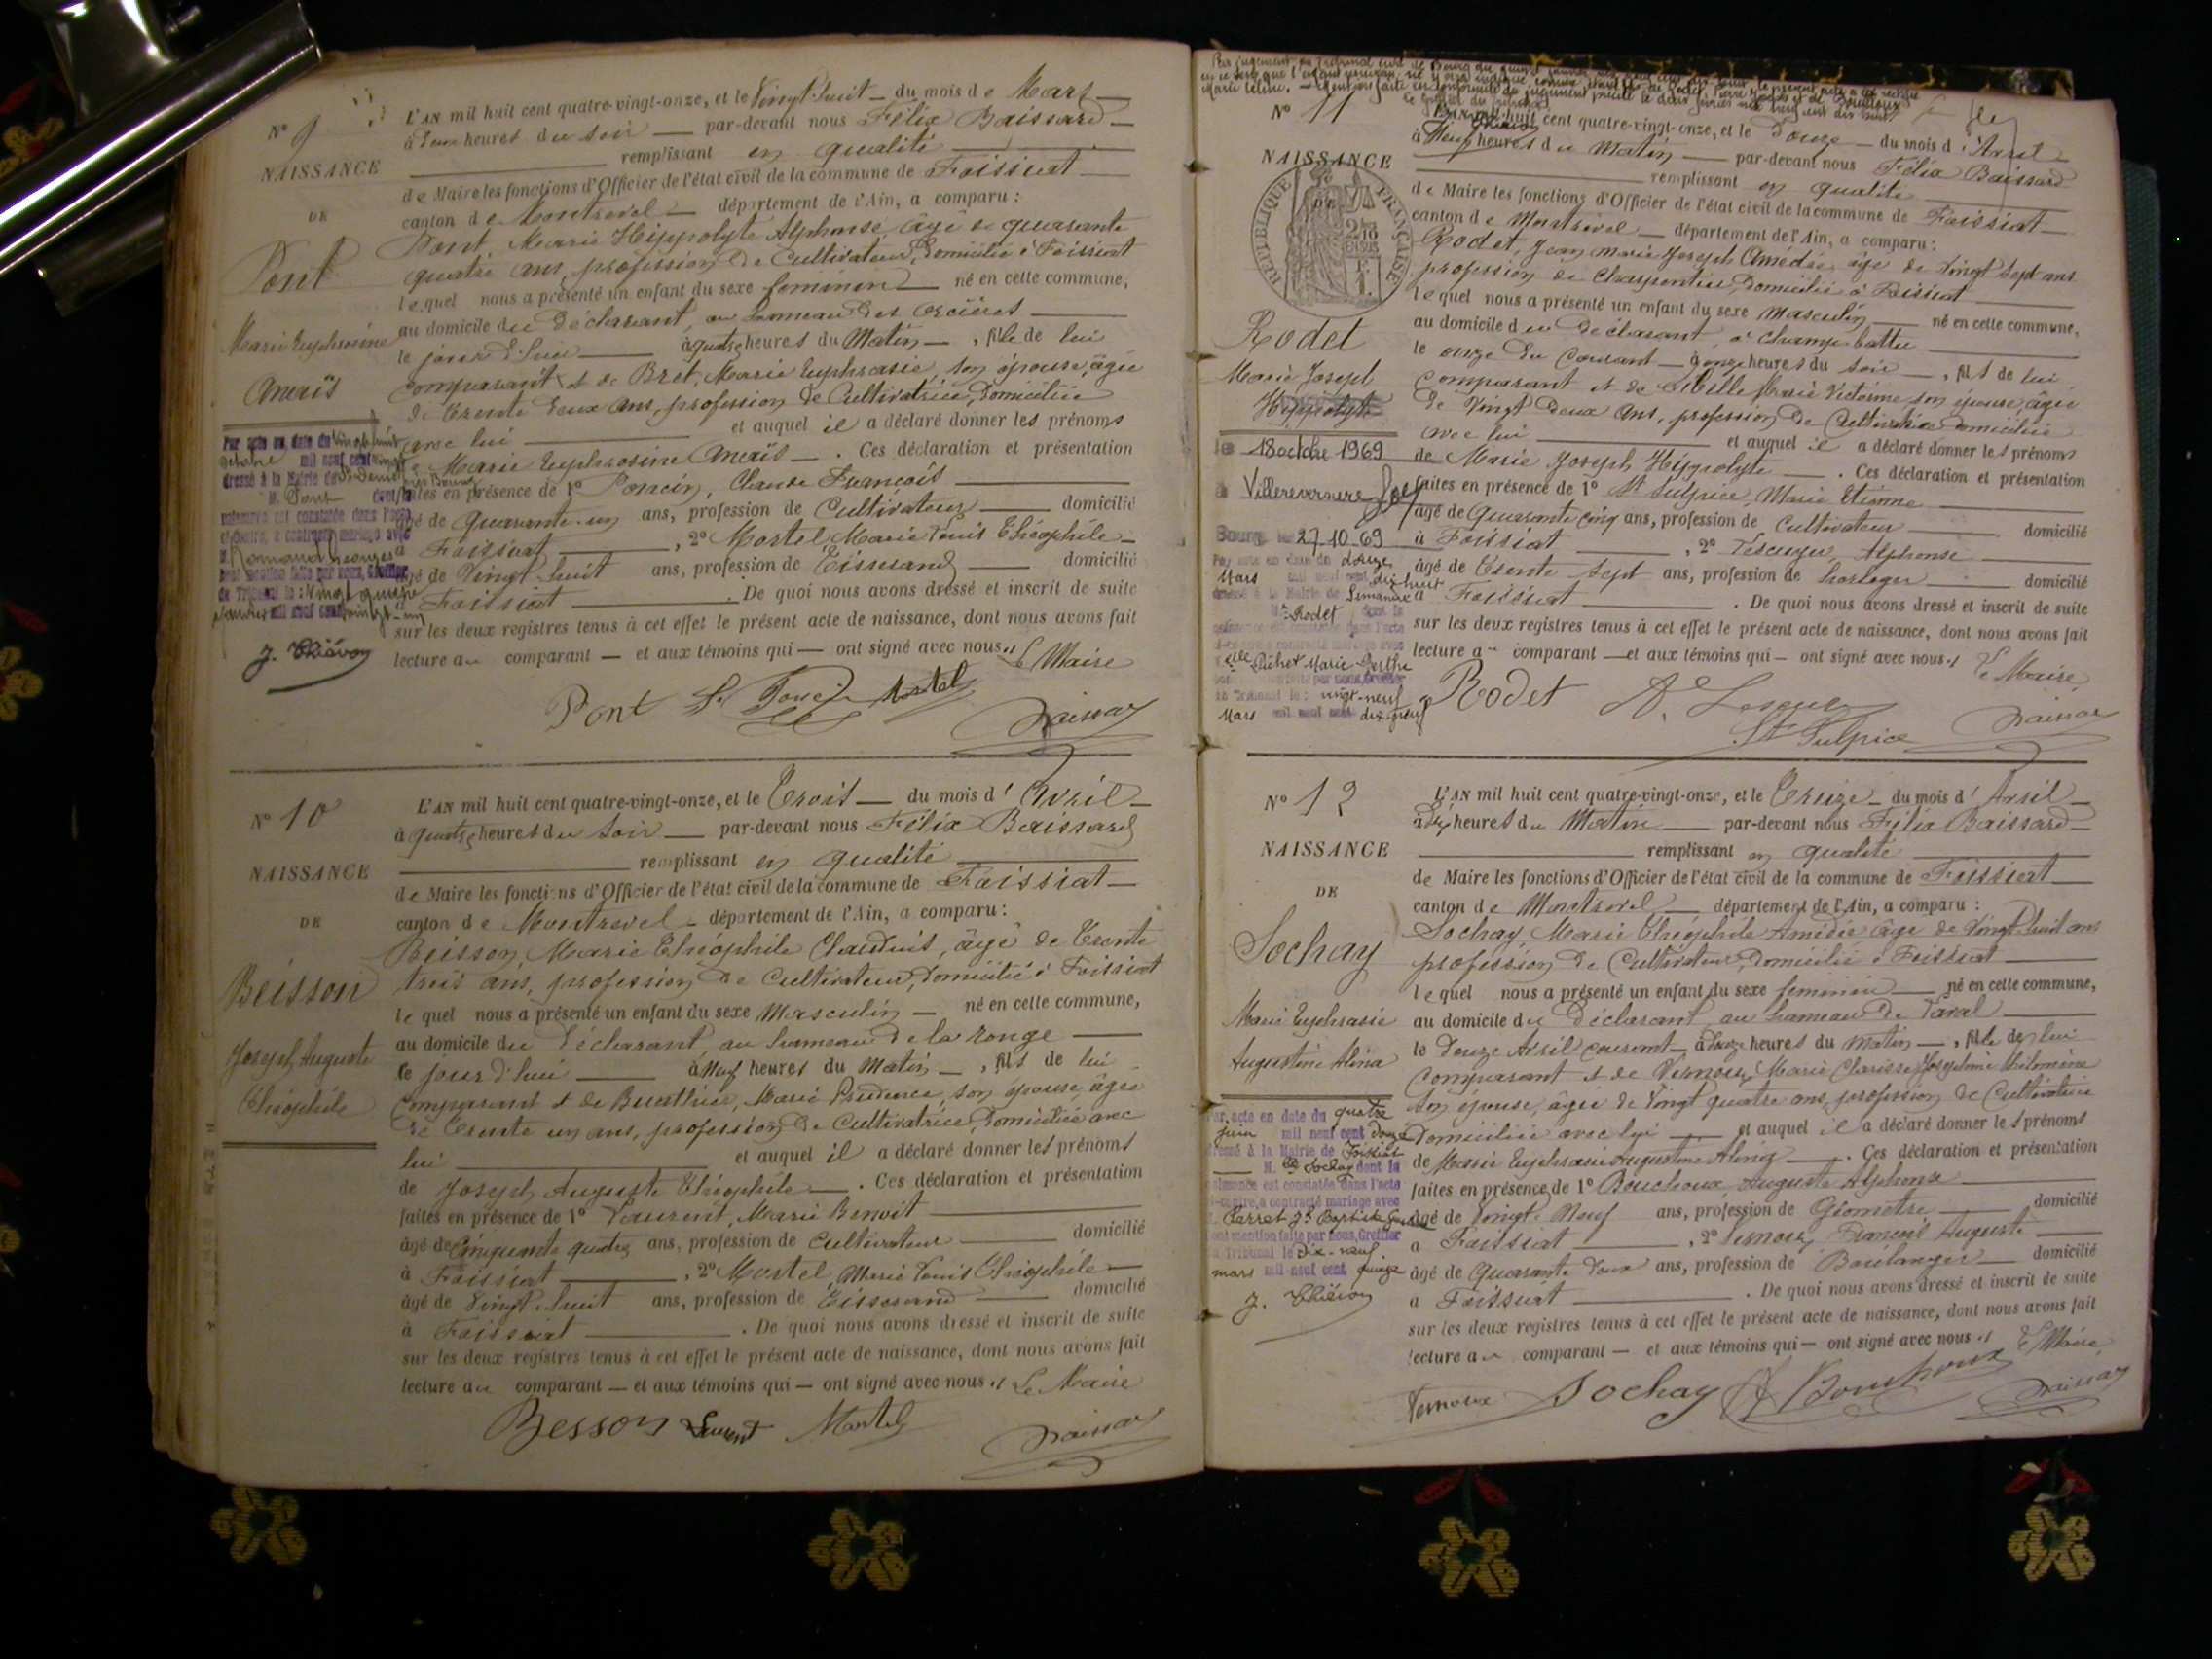 N° 9
NAISSANCE
DE
Pont
Marie Euphrosine
Anaïs
L'AN mil huit cent quatre-vingt-onze, et le Vingt-huit du mois de Mars
à heures du soir par-devant nous Félix Baissard
remplissant en qualité
de Maire les fonctions d'Officier de l'état civil de la commune de Foissiat
canton de Montrevel département de l'Ain, a comparu :
Pont, Marie Hippolyte Alphonse, âgé de quarante
quatre ans, profession de Cultivateur, domicilié à Foissiat
lequel nous a présenté un enfant du sexe féminin né en cette commune,
au domicile du déclarant, au hameau des
le jourd'hui à quatre heures du Matin, fille de lui
comparant et de Bret, Marie Euphrasie, son épouse, âgée
de trente deux ans, profession de Cultivatrice, domiciliée
avec lui et auquel il a déclaré donner les prénoms
de Marie Euphrosine Anaïs. Ces déclaration et présentation
faites en présence de 1° Poncin, Claude François
âgé de Quarante-un ans, profession de Cultivateur domicilié
à Foissiat, 2° Mortel, Marie Louis Théophile
âgé de Vingt-huit ans, profession de Tisserand domicilié
à Foissiat. De quoi nous avons dressé et inscrit de suite
sur les deux registres tenus à cet effet le présent acte de naissance, dont nous avons fait
lecture au comparant et aux témoins qui ont signé avec nous. Le Maire
Par acte en date du vingt huit
octobre mil neuf cent vingt
dressé à la Mairie de St Denis
M. Pont dont la
naissance est constatée dans l'acte
ci-contre, a contracté mariage avec
M. Romand Georges
dont mention faite par nous, Greffier
du Tribunal le : vingt quatre
janvier mil neuf cent vingt-un
J. Chiévon
Pont Poncin Mortel
Baissard
N° 10
NAISSANCE
DE
Beisson
Joseph Auguste
Théophile
L'AN mil huit cent quatre-vingt-onze, et le Trois du mois d'Avril
à quatre heures du soir par-devant nous Félix Baissard
remplissant en qualité
de Maire les fonctions d'Officier de l'état civil de la commune de Foissiat
canton de Montrevel département de l'Ain, a comparu :
Beisson, Marie Théophile Claudius, âgé de trente
trois ans, profession de Cultivateur, domicilié à Foissiat
lequel nous a présenté un enfant du sexe Masculin né en cette commune,
au domicile du déclarant, au hameau de la ronge
le jourd'hui à Neuf heures du Matin, fils de lui
comparant et de Buathier, Marie Prudence, son épouse, âgée
de trente un ans, profession de Cultivatrice, domiciliée avec
lui et auquel il a déclaré donner les prénoms
de Joseph Auguste Théophile. Ces déclaration et présentation
faites en présence de 1° Laurent, Marie Benoit
âgé de Cinquante quatre ans, profession de Cultivateur domicilié
à Foissiat, 2° Mortel, Marie Louis Théophile
âgé de Vingt-huit ans, profession de Tisserand domicilié
à Foissiat. De quoi nous avons dressé et inscrit de suite
sur les deux registres tenus à cet effet le présent acte de naissance, dont nous avons fait
lecture au comparant et aux témoins qui ont signé avec nous. Le Maire
Besson Laurent Mortel
Baissard
N° 11
NAISSANCE
DE
RÉPUBLIQUE FRANÇAISE
Rodet
Marie Joseph
Hippolyte
L'AN mil huit cent quatre-vingt-onze, et le Douze du mois d'Avril
à Neuf heures du Matin par-devant nous Félix Baissard
remplissant en qualité
de Maire les fonctions d'Officier de l'état civil de la commune de Foissiat
canton de Montrevel département de l'Ain, a comparu :
Rodet, Jean Marie Joseph Amédée, âgé de vingt sept ans
profession de Charpentier, domicilié à Foissiat
lequel nous a présenté un enfant du sexe Masculin né en cette commune,
au domicile du déclarant, à Champ battu
le onze du courant à onze heures du soir, fils de lui
comparant et de Sibille Marie Victorine son épouse, âgée
de Vingt Deux ans, profession de Cultivatrice domiciliée
avec lui et auquel il a déclaré donner les prénoms
de Marie Joseph Hippolyte. Ces déclaration et présentation
faites en présence de 1° St Sulpice, Marie Etienne
âgé de Quarante cinq ans, profession de Cultivateur domicilié
à Foissiat, 2° Lescuyer, Alphonse
âgé de Trente sept ans, profession de horloger domicilié
à Foissiat. De quoi nous avons dressé et inscrit de suite
sur les deux registres tenus à cet effet le présent acte de naissance, dont nous avons fait
lecture au comparant et aux témoins qui ont signé avec nous. Le Maire
le 18 octobre 1969
à Villereversure
Bourg, le 27-10-69
Par acte en date du douze
Mars mil neuf cent dix huit
dressé à la Mairie de
M. Rodet dont la
Melle Pichet Marie Berthe
du Tribunal le : vingt-neuf
Mars mil neuf cent dix-neuf
Rodet A. Lescuyer
St Sulpice Baissard
N° 12
NAISSANCE
DE
Sochay
Marie Euphrasie
Augustine Alina
L'AN mil huit cent quatre-vingt-onze, et le Treize du mois d'Avril
à dix heures du Matin par-devant nous Félix Baissard
remplissant en qualité
de Maire les fonctions d'Officier de l'état civil de la commune de Foissiat
canton de Montrevel département de l'Ain, a comparu :
Sochay Marie Théophile Amédée âgé de Vingt huit ans
profession de Cultivateur, domicilié à Foissiat
lequel nous a présenté un enfant du sexe féminin né en cette commune,
au domicile du déclarant au hameau de Laval
le Douze Avril courant à Douze heures du Matin, fille de lui
comparant et de Vernoux, Marie Clarisse Joséphine Philomène
son épouse, âgée de Vingt quatre ans, profession de Cultivatrice
domiciliée avec lui et auquel il a déclaré donner les prénoms
de Marie Euphrasie Augustine Alina. Ces déclaration et présentation
faites en présence de 1° Bouchoux, Auguste Alphonse
âgé de Vingt-Neuf ans, profession de Géomètre domicilié
à Foissiat, 2° Vernoux, Auguste
âgé de Quarante Deux ans, profession de Boulanger domicilié
à Foissiat. De quoi nous avons dressé et inscrit de suite
sur les deux registres tenus à cet effet le présent acte de naissance, dont nous avons fait
lecture au comparant et aux témoins qui ont signé avec nous. Le Maire,
Par acte en date du quatre
juin mil neuf cent douze
dressé à la Mairie de Foissiat
M. Sochay dont la
naissance est constatée dans l'acte
ci-contre, a contracté mariage avec
Perret Jh Baptiste
dont mention faite par nous, Greffier
du Tribunal le Dix-neuf
mars mil neuf cent quinze
J. Chiévon
Vernoux Sochay A Bouchoux
Baissard